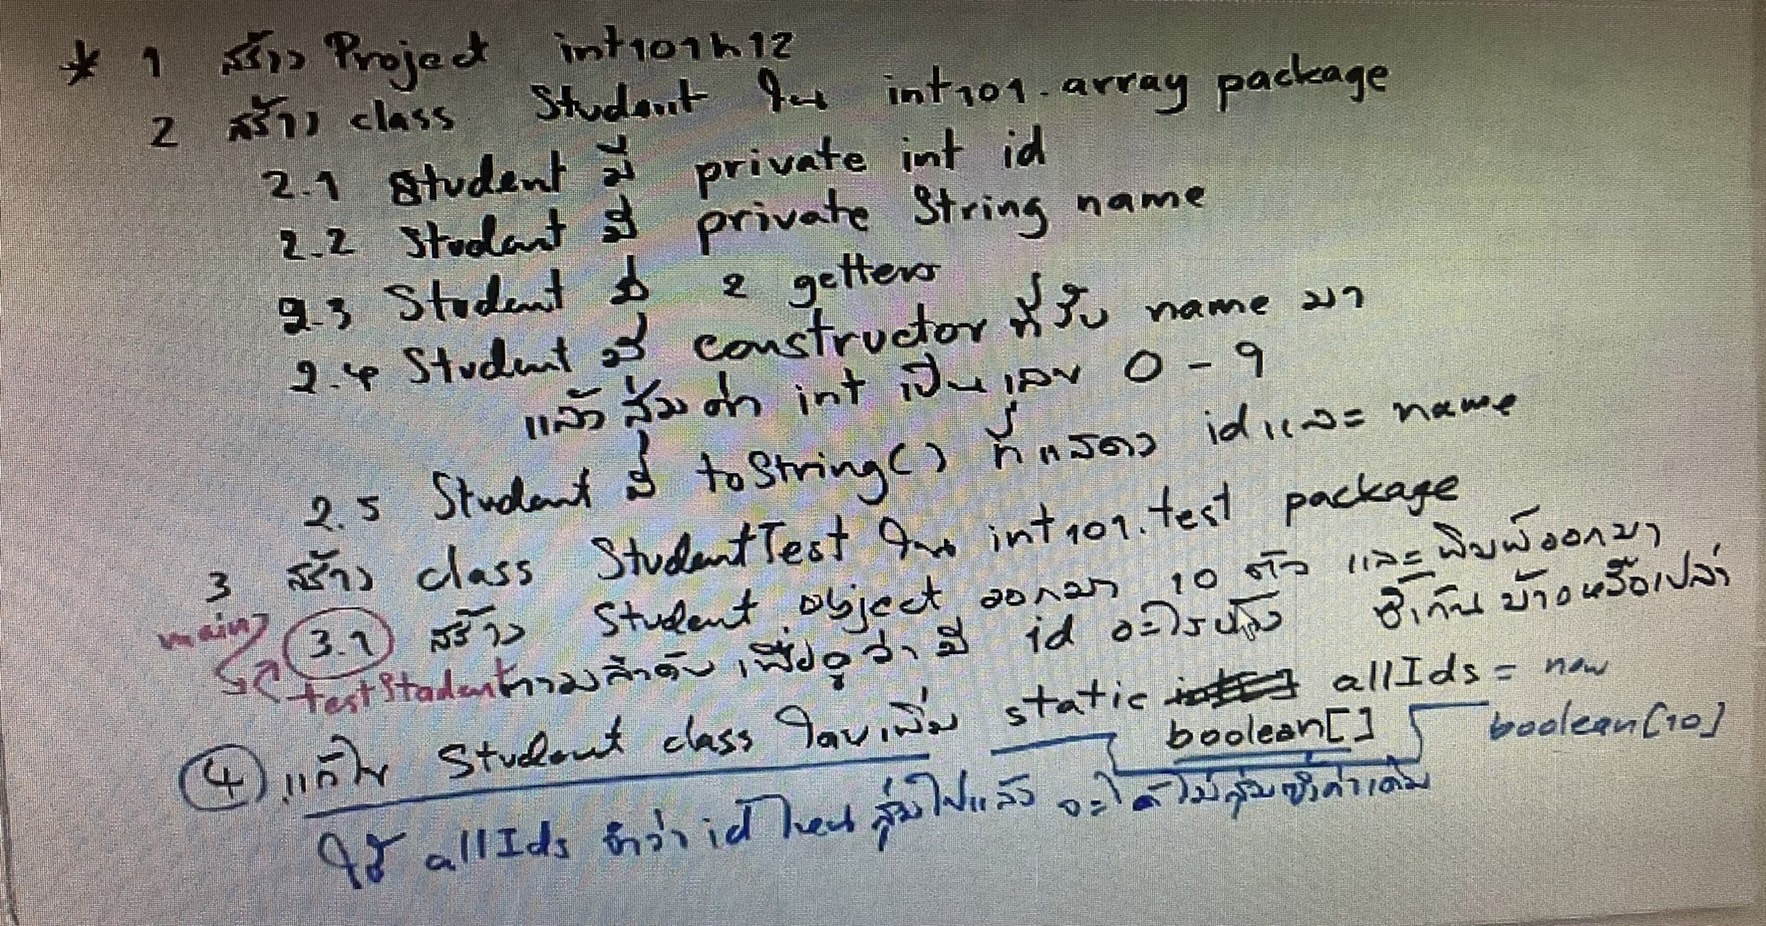 * 1 สร้าง Project int101h12
2 สร้าง class Student ใน int101.array package
2.1 Student มี private int id
2.2 Student มี private String name
2.3 Student มี 2 getters
2.4 Student มี constructor ที่รับ name มา
แล้วสุ่มค่า int เป็นเลข 0 - 9
2.5 Student มี toString() ที่แสดง id และ name
3 สร้าง class StudentTest ใน int101.test package
main 3.1 สร้าง Student object ออกมา 10 ตัว และพิมพ์ออกมา
testStudent ตามลำดับ เพื่อดูว่ามี id อะไรบ้าง ซ้ำกันบ้างหรือเปล่า
4 แก้ไข Student class โดยเพิ่ม static boolean[] allIds = new boolean[10]
ใช้ allIds จำว่า id ไหนสุ่มไปแล้ว จะได้ไม่สุ่มซ้ำค่าเดิม